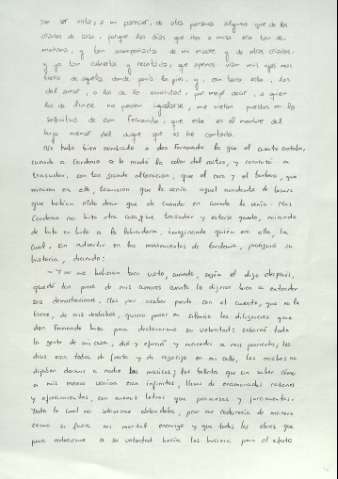 ser vista, a mi parecer, de otra persona alguna que de los
criados de casa, porque los días que iba a misa era tan de
mañana, y tan acompañada de mi madre y de otras criadas,
y yo tan cubierta y recatada, que apenas vían mis ojos más
tierra de aquella donde ponía los pies, y, con todo esto, los
del amor, o los de la ociosidad, por mejor decir, a quien
los de lince no pueden igualarse, me vieron, puestos en la
solicitud de don Fernando, que este es el nombre del
hijo menor del duque que os he contado.
No hubo bien nombrado a don Fernando la que el cuento contaba,
cuando a Cardenio se le mudó la color del rostro, y comenzó a
trasudar, con tan grande alteración, que el cura y el barbero, que
miraron en ello, temieron que le venía aquel accidente de locura
que habían oído decir que de cuando en cuando le venía. Mas
Cardenio no hizo otra cosa que trasudar y estarse quedo, mirando
de hito en hito a la labradora, imaginando quién era ella, la
cual, sin advertir en los movimientos de Cardenio, prosiguió su
historia, diciendo:
-Y no me hubieron bien visto, cuando, según él dijo después,
quedó tan preso de mis amores cuanto lo dieron bien a entender
sus demostraciones. Mas por acabar presto con el cuento, que no le
tiene, de mis desdichas, quiero pasar en silencio las diligencias que
don Fernando hizo para declararme su voluntad: sobornó toda
la gente de mi casa, dio y ofreció y mercedes a mis parientes; los
días eran todos de fiesta y de regocijo en mi calle, las noches no
dejaban dormir a nadie las músicas; los billetes que sin saber cómo
a mis manos venían eran infinitos, llenos de enamoradas razones
y ofrecimientos, con menos letras que promesas y juramentos.
Todo lo cual no sólo no me ablandaba, pero me endurecía de manera
como si fuera mi mortal enemigo y que todas las obras que
para reducirme a su voluntad hacía las hiciera para el efeto